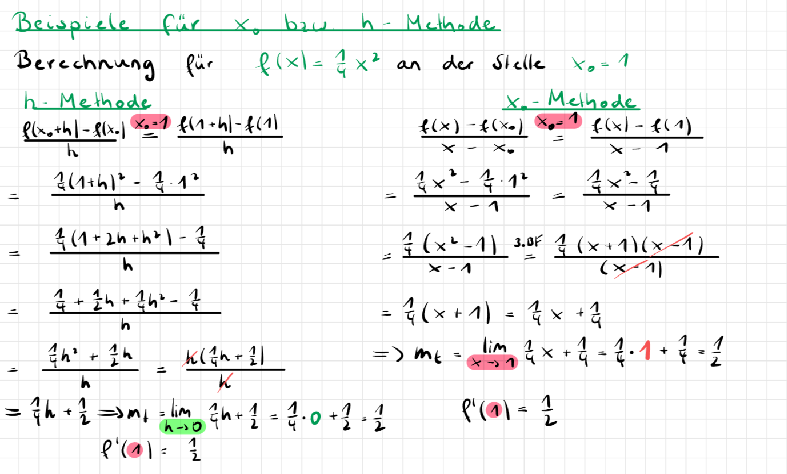 Beispiele für x₀ bzw h-Methode
Berechnung für f(x) = 1/4 x² an der Stelle x₀ = 1
h-Methode
(f(x₀+h) - f(x₀))/h =^(x₀=1) (f(1+h) - f(1))/h
= (1/4(1+h)² - 1/4 · 1²)/h
= (1/4(1 + 2h + h²) - 1/4)/h
= (1/4 + 1/2h + 1/4h² - 1/4)/h
= (1/4h² + 1/2h)/h = (h(1/4h + 1/2))/h
= 1/4h + 1/2 => mₜ = lim h→0 1/4h + 1/2 = 1/4 · 0 + 1/2 = 1/2
f'(1) = 1/2
x₀-Methode
(f(x) - f(x₀))/(x - x₀) =^(x₀=1) (f(x) - f(1))/(x - 1)
= (1/4x² - 1/4 · 1²)/(x - 1) = (1/4x² - 1/4)/(x - 1)
= (1/4(x² - 1))/(x - 1) =^(3.BF) (1/4(x+1)(x-1))/(x-1)
= 1/4(x+1) = 1/4x + 1/4
=> mₜ = lim x→1 1/4x + 1/4 = 1/4 · 1 + 1/4 = 1/2
f'(1) = 1/2